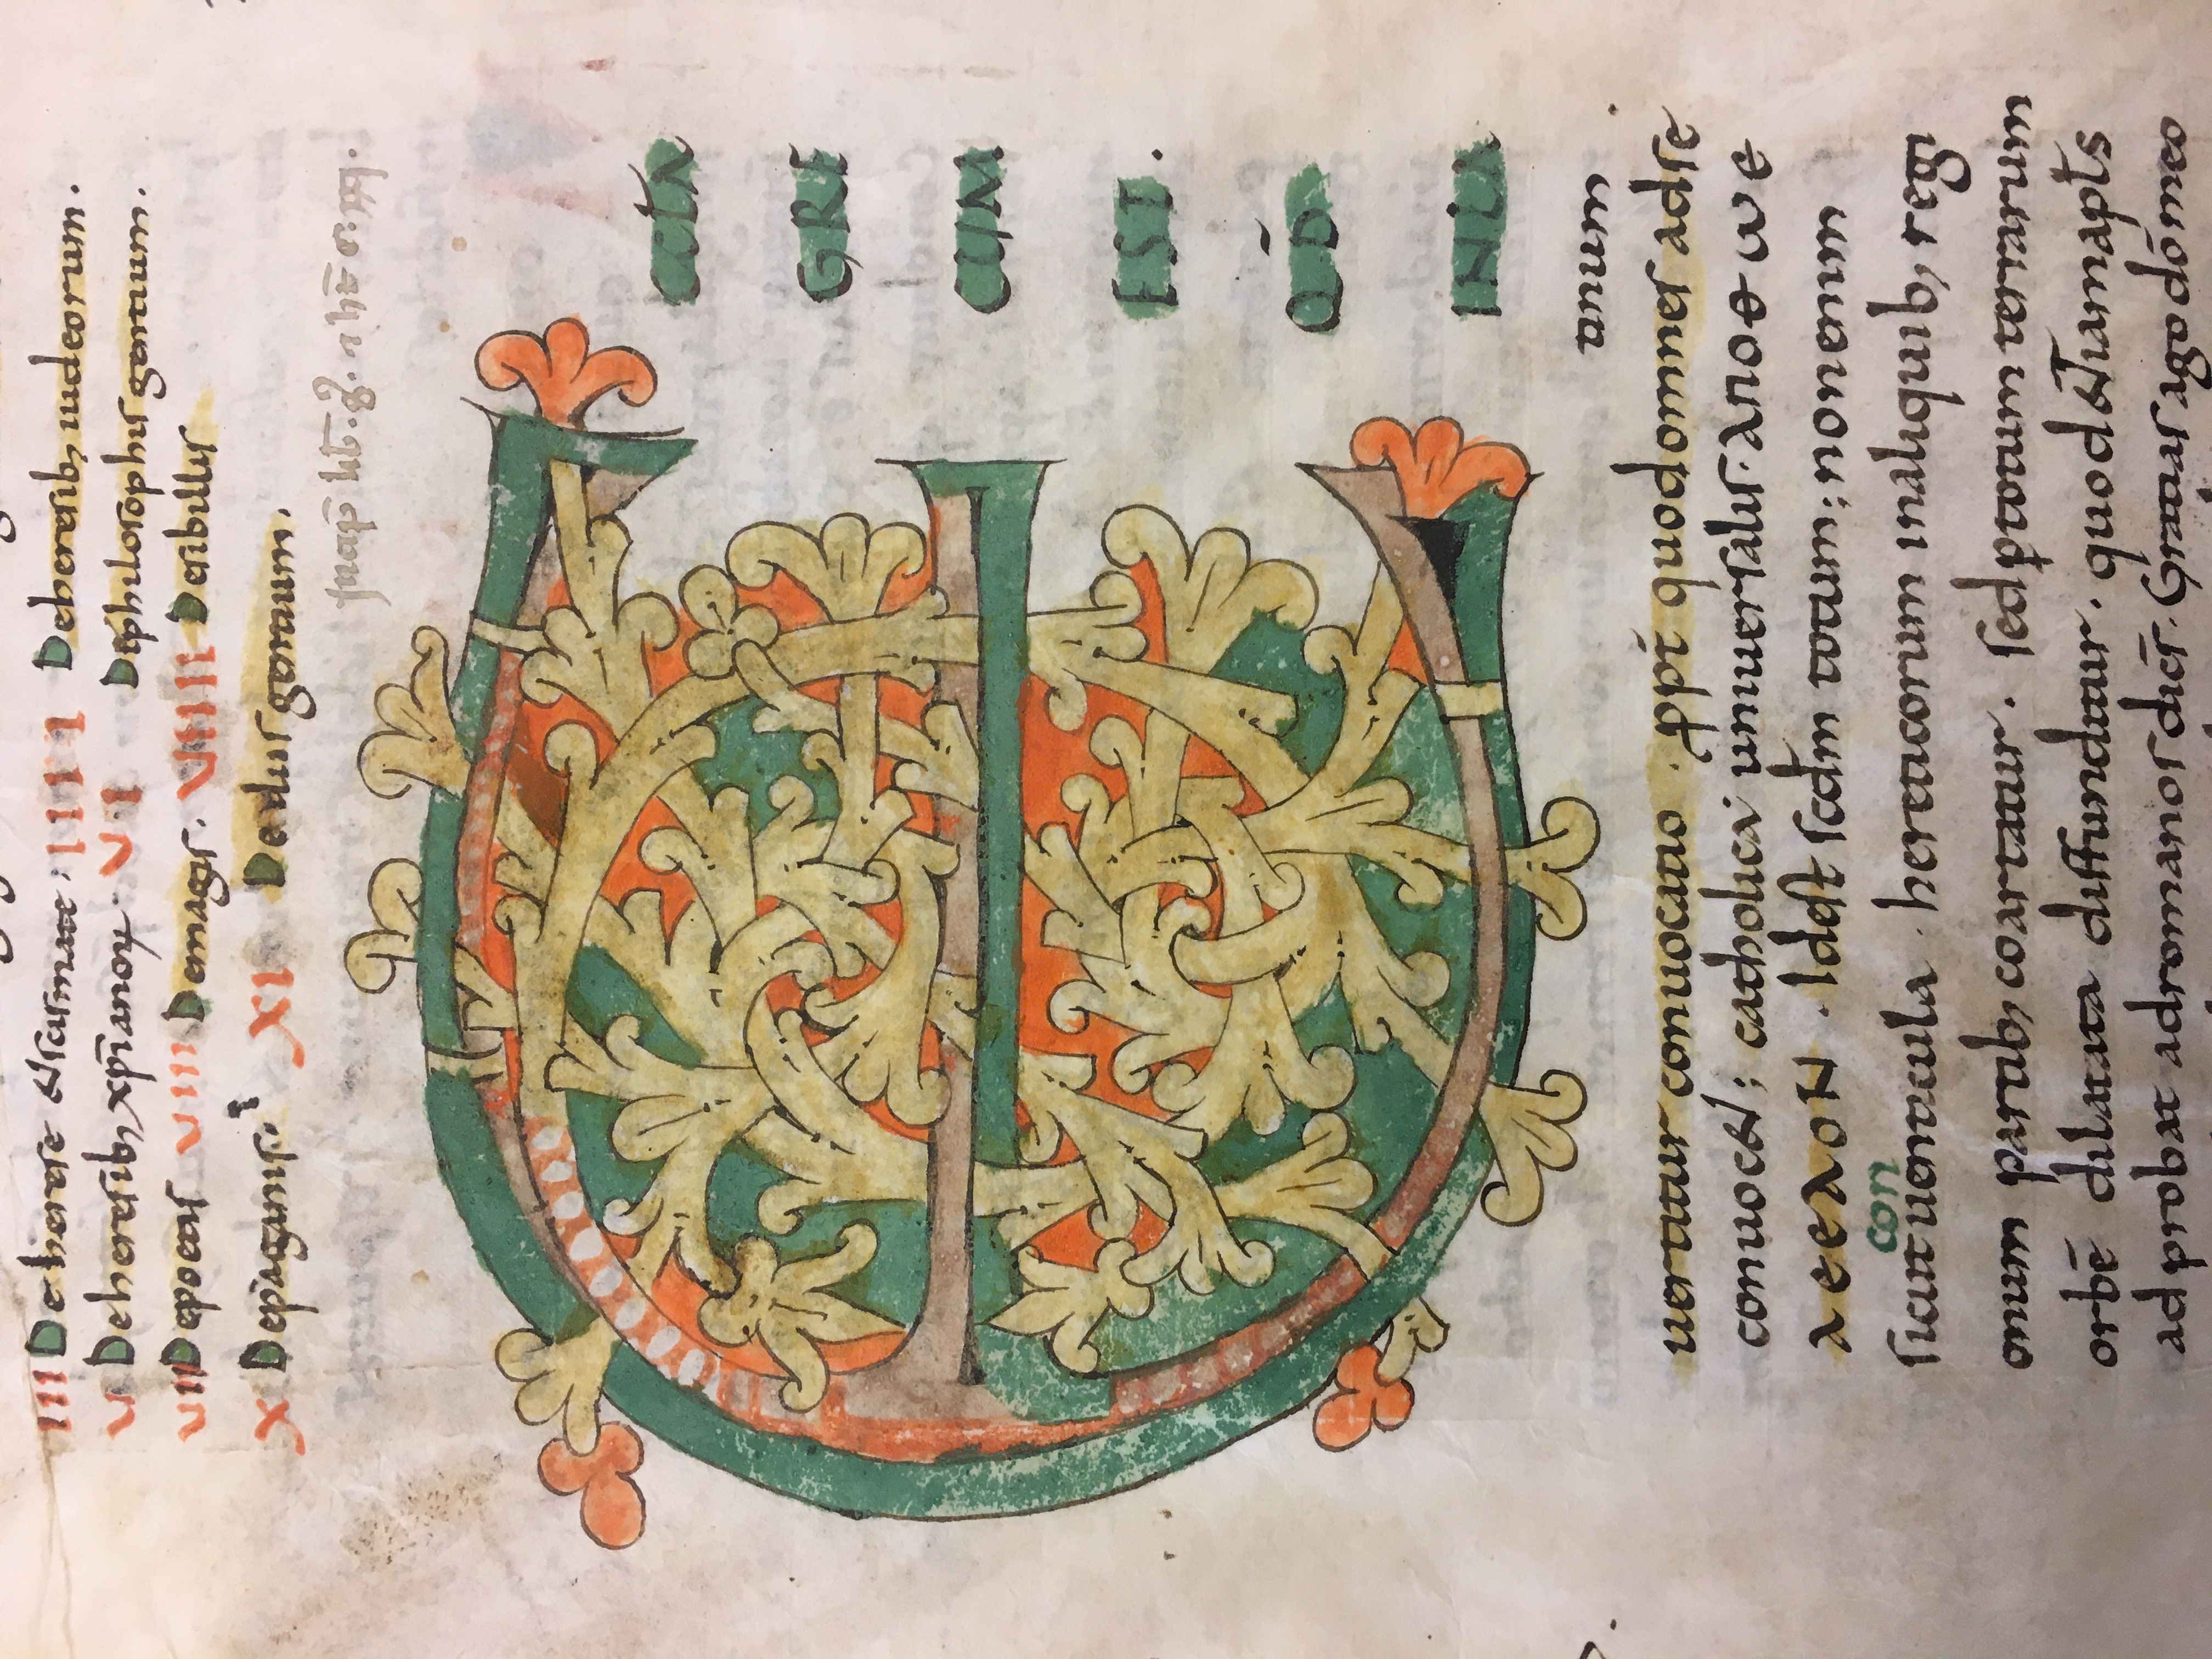 III De herese et scismate. IIII De heresib; iudeorum.
V De heresib; xp̄ianoꝝ. VI De philosophis gentium.
VII De poetas VIII De magis. VIIII De sibillis
X De paganis XI De diis gentium.
E
CCLA
GRE
CUM
EST.
QD̄
IN LA
tinum
uertitur conuocatio. ꝓpt̄ quod omnes ad se
conuocet; catholica uniuersalis. ΑΠΟ Θ ω ε
λ ε ε λ ο Ν. Id est scd̄m totum; non enim
con
sicut uenticula. hereticorum in aliquib; regi
onum partib; coartatur. sed ꝑ totum terrarum
orbē dilatata diffunditur. quod etiam apt̄s
ad probat ad romanos dic̄r. Gratias ago dō meo